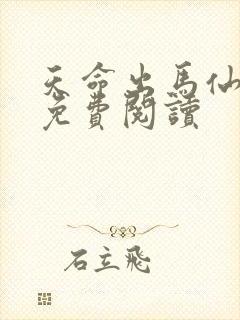 天命出馬仙
免費閱讀
石立飛